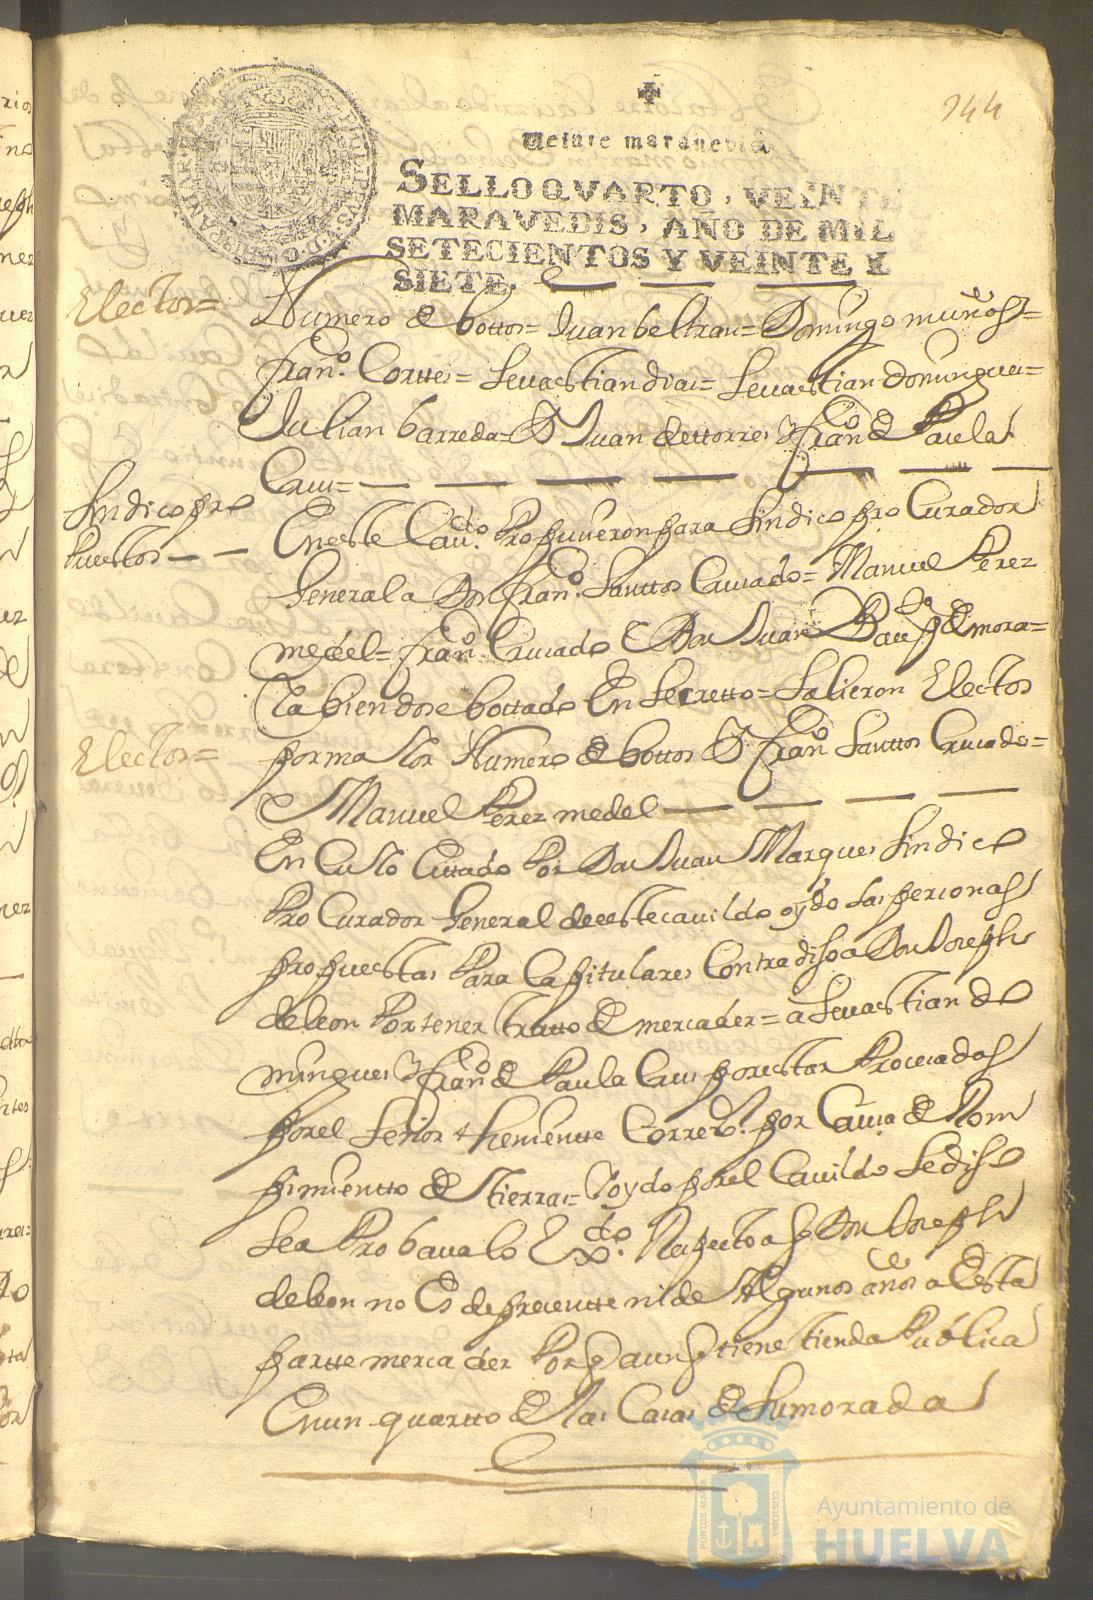 244
Veinte maravedis
SELLO QVARTO, VEINTE
MARAVEDIS, AÑO DE MIL
SETECIENTOS Y VEINTE Y
SIETE.
Electos=
Numero de bottos= Juan beltran= Domingo muños=
fran.co Corttes= Sevastian dias= Sevastian dominguez=
Julian barreda= D Juan de ttorres y fran.co de Paula
Cruz=
Sindico pro
Puestos
En este Cav.do Propuvieron para Sindico pro Curador
General a Don fran.co Santtos Cruzado= Manuel Perez
medel= fran.co Cruzado E Don Juan Bau.ta de mora=
Y abiendose bottado En Secretto= Salieron Electos
Electos=
por maior Numero de bottos D. fran.co Santtos Cruzado=
E Manuel Perez medel
En Cuio Esttado Por Don Juan Marques Sindico
Pro Curador General de este cavildo oydo las personas
propuestas Para Capitulares Contradiso a Don Joseph
de leon Por tener tratto de mercader= a Sevastian Do
minguez y fran.co de Paula Cruz por estar Procesados
por el Señor theniente Corre.or por Causa de Rom
pimientto de tierras= Y oydo por el Cavildo Se diso
Sea Probava lo Ex.do Respecto a q Don Joseph
de leon no Es de presente ni de Algunos años a Esta
partte mercader Por q aun q tiene tienda Publica
En un quartto de las Casas de Su morada
PORTUS MARIS
CUSTODIA
Ayuntamiento de
HUELVA